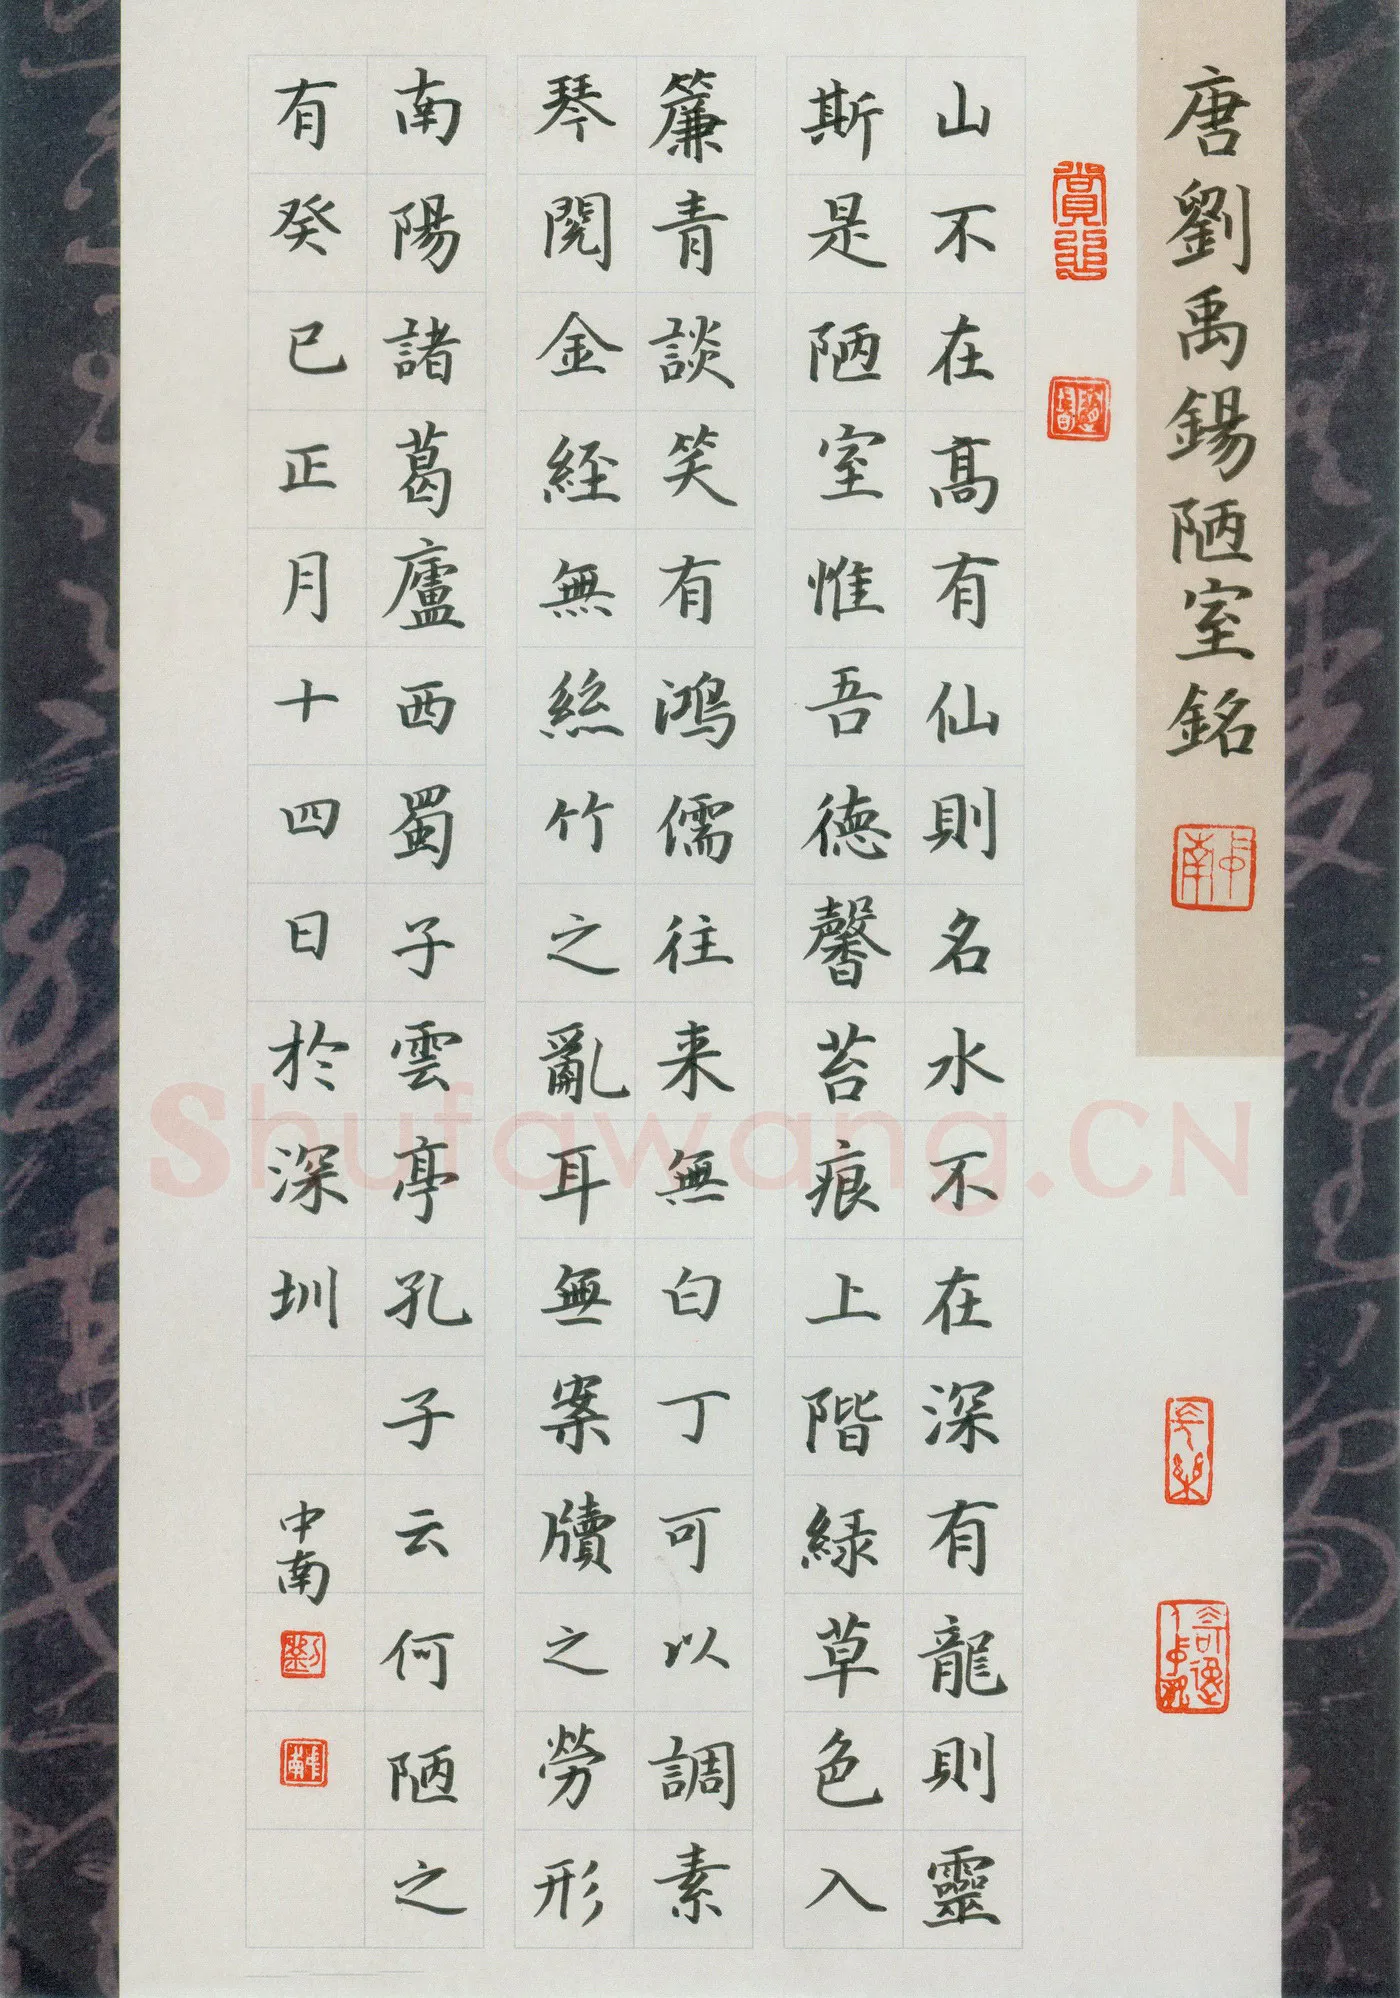 唐劉禹錫陋室銘
山不在高有仙則名水不在深有龍則靈
斯是陋室惟吾德馨苔痕上階緑草色入
簾青談笑有鴻儒往来無白丁可以調素
琴閱金經無絲竹之亂耳無案牘之勞形
南陽諸葛廬西蜀子雲亭孔子云何陋之
有癸巳正月十四日於深圳
中南
Shufawang.CN